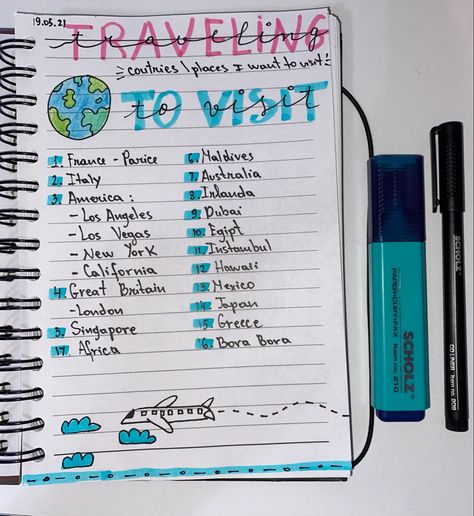 19.05.21
TRAVELING
traveling
coutries \ places I want to visit
TO VISIT
to visit
1. France - Parice
2. Italy
3. America :
- Los Angeles
- Los Vegas
- New York
- California
4. Great Britain
- London
5. Singapore
17. Africa
6. Maldives
7. Australia
8. Irlanda
9. Dubai
10. Egipt
11. Instambul
12. Hawaii
13. Mexico
14. Japan
15. Greece
16. Bora Bora
SCHOLZ
PAPER•COPY•FAX
Item no. 210
SCHOLZ
CD LINER
Item no. 209